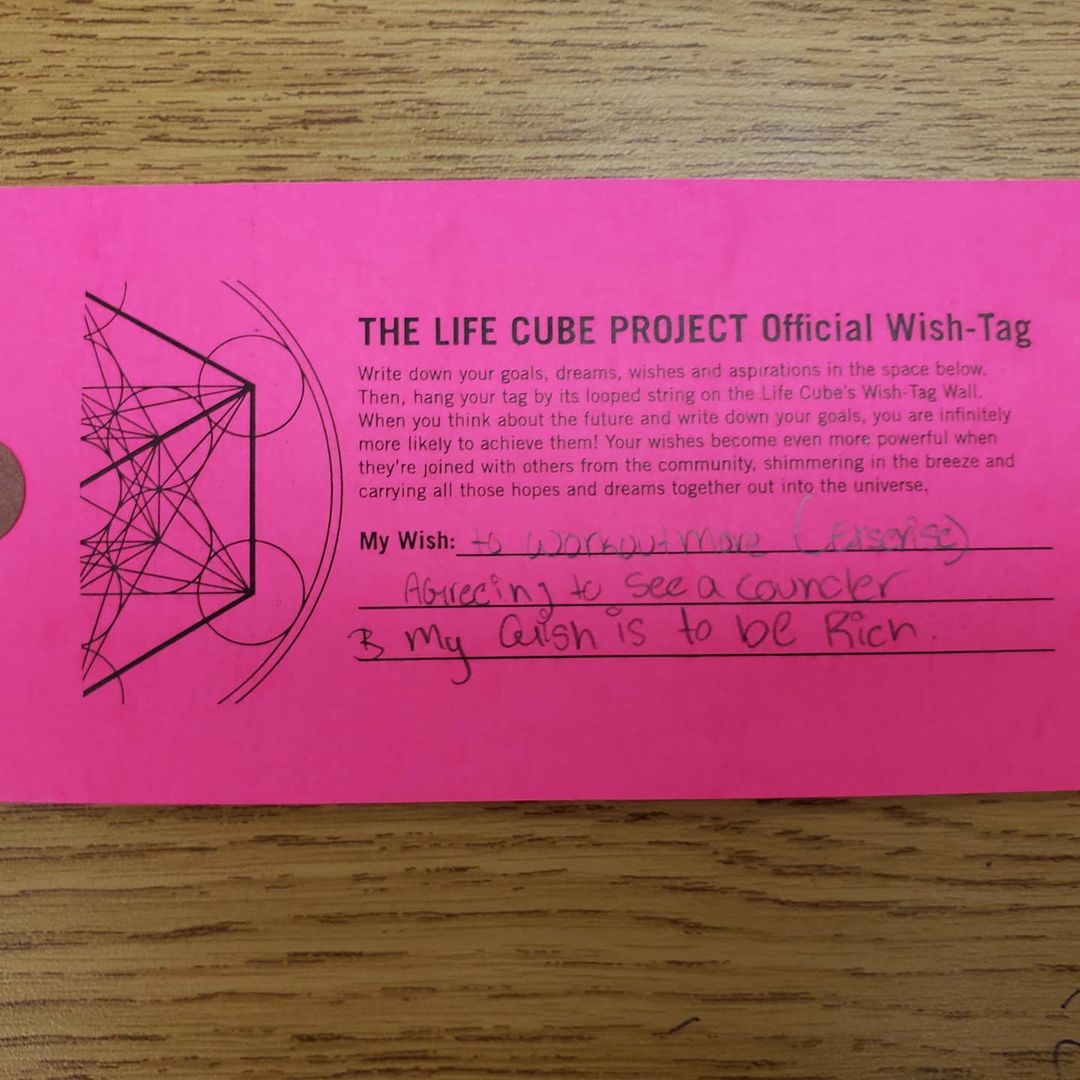 THE LIFE CUBE PROJECT Official Wish-Tag
Write down your goals, dreams, wishes and aspirations in the space below.
Then, hang your tag by its looped string on the Life Cube's Wish-Tag Wall.
When you think about the future and write down your goals, you are infinitely
more likely to achieve them! Your wishes become even more powerful when
they're joined with others from the community, shimmering in the breeze and
carrying all those hopes and dreams together out into the universe.
My Wish: to workout more (Exsersise)
Agreeing to see a councler
My Wish is to be Rich.